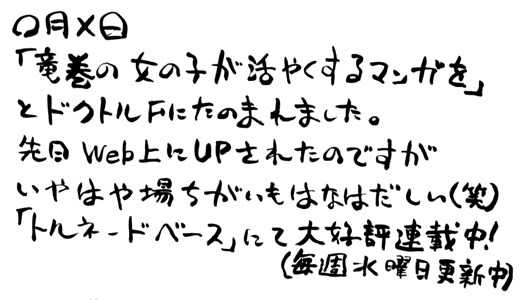 〇月×日
「竜巻の女の子が活やくするマンガを」
とドクトルFにたのまれました。
先日Web上にUPされたのですが
いやはや場ちがいもはなはだしい(笑)
「トルネードベース」にて大好評連載中!
(毎週水曜日更新中)